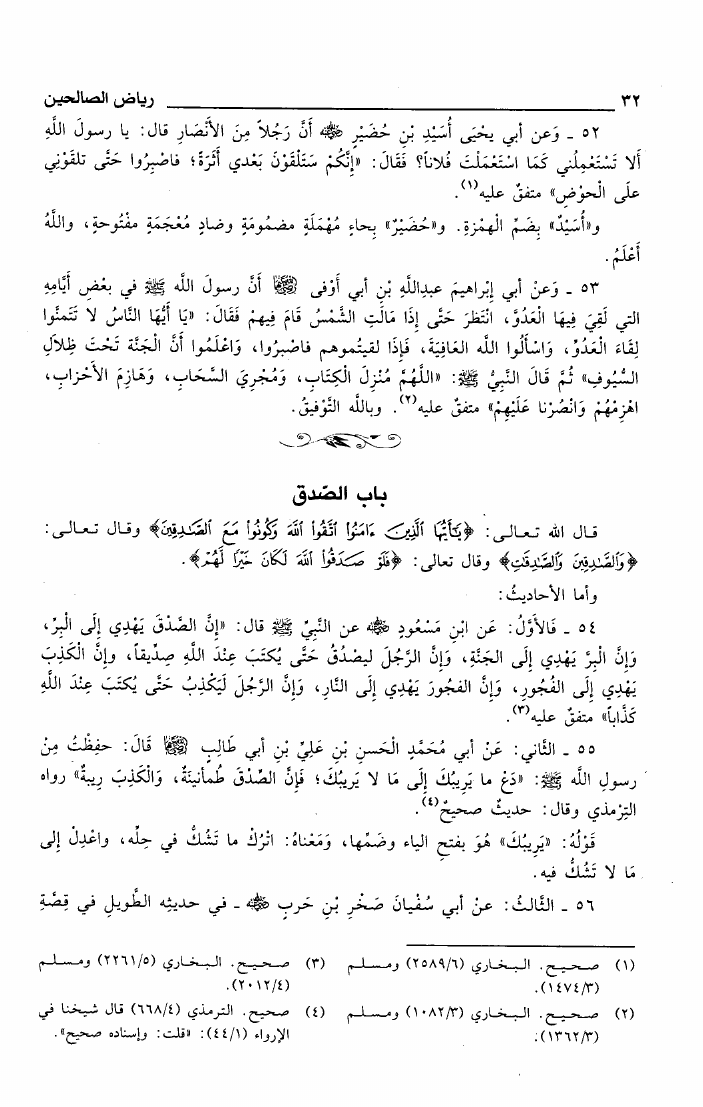 ٣٢ رياض الصالحين
٥٢ ـ وَعن أبي يحْيَى أُسَيْدِ بْنِ حُضَيْرٍ ﷺ أَنَّ رَجُلاً مِنَ الأَنْصَارِ قال: يا رسولَ اللَّهِ
أَلا تَسْتَعْمِلُني كَمَا اسْتَعْمَلْتَ فُلاناً؟ فَقَالَ: «إِنَّكُمْ سَتَلْقَوْنَ بَعْدي أَثَرَةً؛ فاصْبِرُوا حَتَّى تلقَوْنِي
علَى الْحوْضِ» متفقٌ عليه(١).
و«أُسَيْدٌ» بِضَمِّ الْهمْزةِ. و«حُضَيْرٌ» بِحاءٍ مُهْمَلَةٍ مضمُومَةٍ وضادٍ مُعْجَمَةٍ مفْتُوحةٍ، واللَّهُ
أَعْلَمُ.
٥٣ ـ وَعنْ أبي إبْراهيمَ عبدِاللَّهِ بْنِ أبي أَوْفى أَنَّ رسولَ الله ﷺ في بعْضِ أَيَّامِهِ
التي لَقِيَ فِيهَا الْعَدُوَّ، انْتَظرَ حَتَّى إِذَا مَالَتِ الشَّمْسُ قَامَ فِيهِمْ فَقَالَ: «يَا أَيُّهَا النَّاسُ لا تَتَمنَّوا
لِقَاءَ الْعَدُوِّ، وَاسْأَلُوا الله العَافِيَةَ، فَإِذَا لقيتُموهم فاصْبِرُوا، وَاعْلَمُوا أَنَّ الْجَنَّة تَحْتَ ظِلاَلِ
السُّيُوفِ» ثُمَّ قَالَ النَّبِيُّ ﷺ: «اللَّهُمَّ مُنْزِلَ الْكِتَابِ، وَمُجْرِيَ السَّحَابِ، وَهَازِمَ الأَحْزابِ،
اهْزِمْهُمْ وَانْصُرْنا عَلَيْهِمْ» متفقٌ عليه(٢). وباللَّهِ التَّوْفيقُ.
باب الصّدق
قـال الله تـعـالـى: ﴿يَٰٓأَيُّهَا ٱلَّذِينَ ءَامَنُوا۟ ٱتَّقُوا۟ ٱللَّهَ وَكُونُوا۟ مَعَ ٱلصَّٰدِقِينَ﴾ وقـال تـعـالـى:
﴿وَٱلصَّٰدِقِينَ وَٱلصَّٰدِقَٰتِ﴾ وقال تعالى: ﴿فَلَوْ صَدَقُوا۟ ٱللَّهَ لَكَانَ خَيْرًا لَّهُمْ﴾.
وأما الأحاديثُ:
٥٤ ـ فَالأَوَّلُ: عَن ابْنِ مَسْعُودٍ عن النَّبِيِّ ﷺ قال: «إِنَّ الصِّدْقَ يَهْدِي إِلَى الْبِرِّ،
وَإِنَّ الْبِرَّ يَهْدِي إِلى الجَنَّةِ، وَإِنَّ الرَّجُلَ ليصْدُقُ حَتَّى يُكتَبَ عِنْدَ اللَّهِ صِدِّيقاً، وإِنَّ الْكَذِبَ
يَهْدِي إِلى الفُجُورِ، وَإِنَّ الفجُورَ يَهْدِي إِلى النَّارِ، وَإِنَّ الرَّجُلَ لَيَكْذِبُ حَتَّى يُكتَبَ عِنْدَ اللَّهِ
كَذَّاباً» متفقٌ عليه(٣).
٥٥ ـ الثَّاني: عَنْ أبي مُحَمَّدٍ الْحَسنِ بْنِ عَلِيِّ بْنِ أبي طَالِبٍ قَالَ: حفِظْتُ مِنْ
رسولِ اللَّه ﷺ: «دَعْ ما يَرِيبُكَ إِلَى مَا لا يَرِيبُكَ؛ فَإِنَّ الصِّدْقَ طُمأنينَةٌ، وَالْكَذِبَ رِيبةٌ» رواه
التِرْمذي وقال: حديثٌ صحيحٌ(٤).
قَوْلُهُ: «يَرِيبُكَ» هُوَ بفتحِ الياء وضَمِّها، وَمَعْناهُ: اتْرُكْ ما تَشُكُّ في حِلِّه، واعْدِلْ إِلى
مَا لا تَشُكُّ فيه.
٥٦ ـ الثَّالثُ: عنْ أبي سُفْيانَ صَخْرِ بْنِ حَربٍ ـ في حديثِه الطَّويلِ في قِصَّةِ
(١) صـحـيـح. الـبـخـاري (٢٥٨٩/٦) ومـسـلـم
(١٤٧٤/٣).
(٢) صـحـيـح. الـبـخـاري (١٠٨٢/٣) ومـسـلـم
(١٣٦٢/٣).
(٣) صـحـيـح. الـبـخـاري (٢٢٦١/٥) ومـسـلـم
(٢٠١٢/٤).
(٤) صحيح. الترمذي (٦٦٨/٤) قال شيخنا في
الإرواء (٤٤/١): «قلت: وإسناده صحيح».